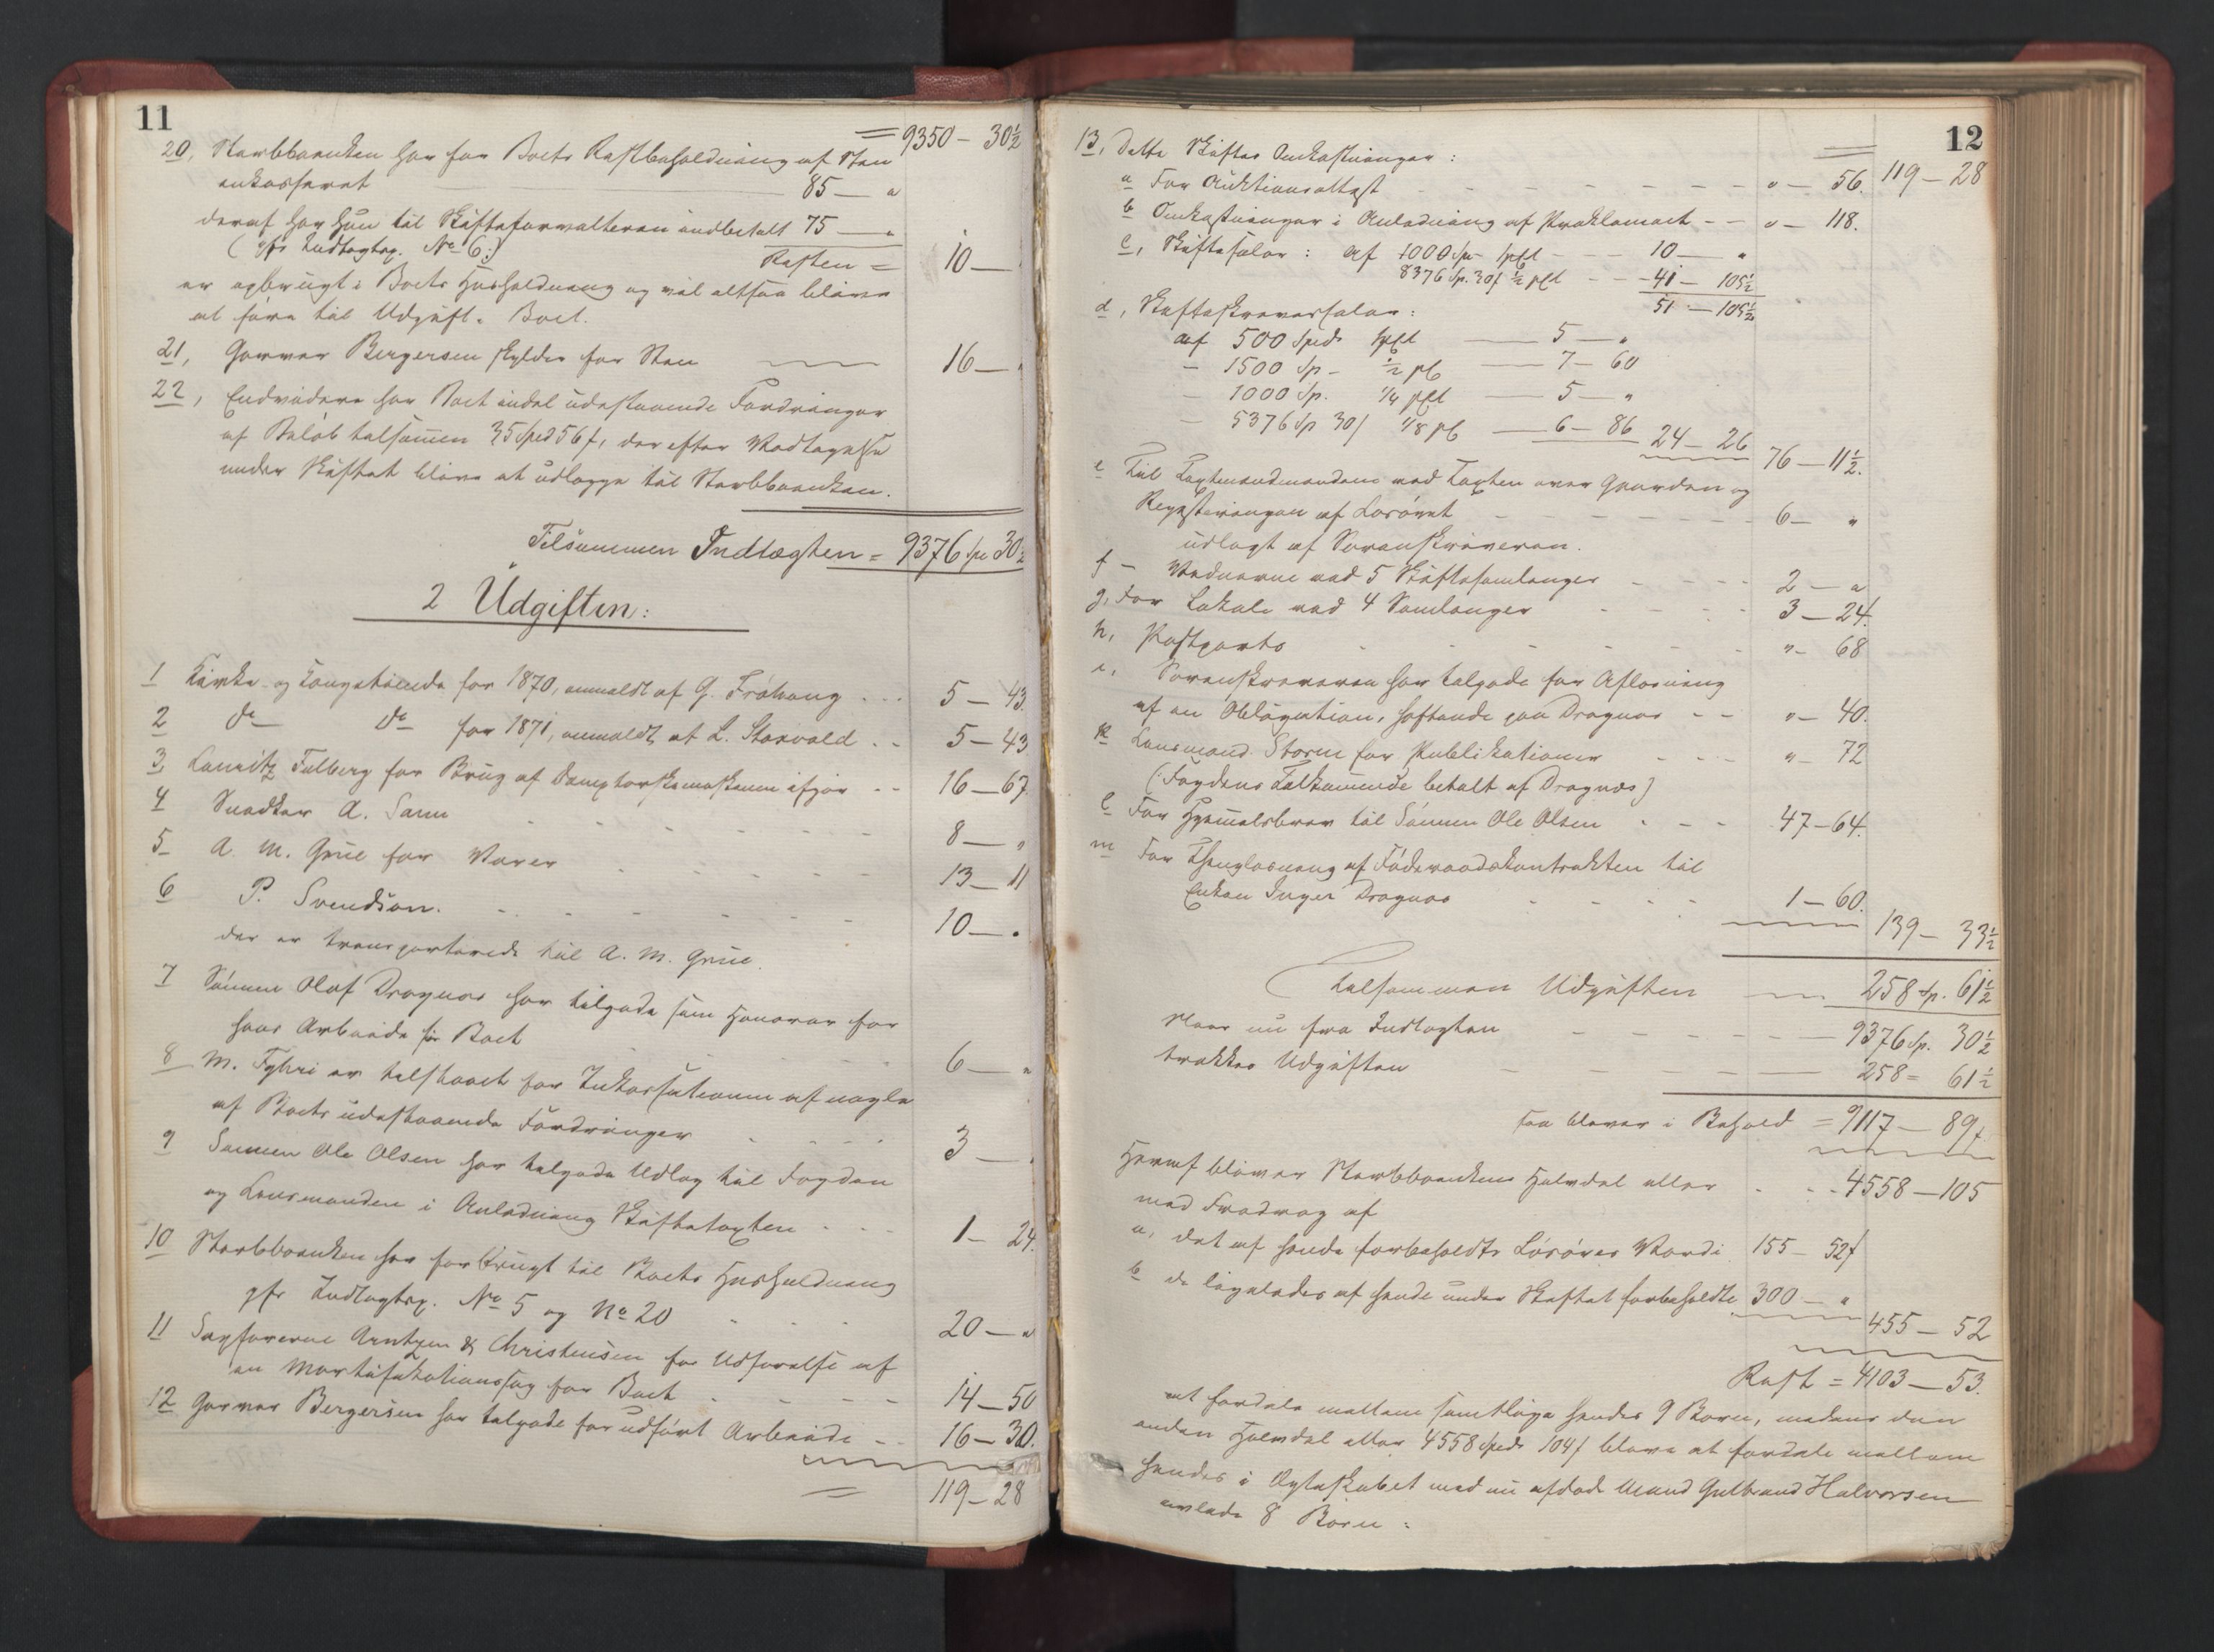 11
= 9350 - 30½
20, Stærbboenken har for Boets Restbeholdning af Sten
inkasseret 85 — "
deraf har hun til Skifteforvalteren indbetalt 75 — "
(cfr Indtægtsp. No 6.) Resten = 10 —
er opbrugt i Boets Husholdning og vil altsaa blive
at føre til Udgift i Boet.
21, Garver Bergersen skylder for Sten — 16 —
22, Endvidere har Boet endel udestaaende Fordringer
af Beløb tilsammen 35 Spd 56 s, der efter Vedtagelse
under Skiftet bliver at udlægge til Stærbboenken.
Tilsammen Indtægten = 9376 Sp 30½
2 Udgiften:
1 Kirke- og Kongetiende for 1870, anmeldt af G. Frøhaug . . . 5 — 43.
2 do do for 1871, anmeldt af L. Stovold . - 5 — 43
3, Lauritz Fulberg for Brug af Damptærskemaskinen ifjor - - 16 — 67
4 Snedker A. Sann - - - - - - 8 — "
5 A. M. Grue for Varer - - - - - 13 — 11
6 P. Svendsen. - - - - - - 10 — "
der er transporterede til A. M. Grue.
7 Sønnen Olaf Dragnæs har tilgode som Honorar for
hans Arbeide for Boet - - - - 6 — "
8 M. Fyhri er tilstaaet for Inkassationen af nogle
af Boets udestaaende Fordringer - - - - 3 —
9 Sønnen Ole Olsen har tilgode Udlæg til Fogden
og Lensmanden i Anledning Skiftetaxten - - - 1 — 24.
10 Stærbboenken har forbrugt til Boets Husholdning
cfr Indtægtsp. No 5 og No 20 - - - 20 — "
11 Sagførerne Arntzen & Christensen for Udførelse af
en Mortifikationssag for Boet - - - - 14 — 50
12 Garver Bergersen har tilgode for udført Arbeide - - 16 — 30.
= 119 — 28
12
119 — 28
13, Dette Skiftes Omkostninger:
a For Auktionsattest - - - - - " — 56.
b Omkostninger i Anledning af Proklamaet - - " — 118.
c, Skiftesalær: af 1000 Sp 1 pCt - - 10 — "
8376 Sp. 30 s ½ pCt - - 41 — 105½
51 — 105½
d, Skifteskriversalær:
af 500 Spd 1 pCt — 5 — "
- 1500 Sp - ½ pCt — 7 — 60
- 1000 Sp. ¼ pCt — 5 — "
- 5376 Sp 30 s ⅛ pCt — 6 — 86 24 — 26
76 — 11½.
e Til Taxtmændmændene ved Taxten over Gaarden og
Registreringen af Løsøret - - - - - 6 — "
udlagt af Sorenskriveren.
f - Vidnerne ved 5 Skiftesamlinger - - - - 2 — "
g, For Lokale ved 4 Samlinger - - - - 3 — 24.
h, Postporto - - - - - " — 68
i. Sorenskriveren har tilgode for Aflæsning
af en Obligation, heftende paa Dragnæs - - " — 40.
k Lensmand Storm for Publikationer - - - " — 72
(Fogdens Tilkommende betalt af Dragnæs)
l For Hjemmelsbrev til Sønnen Ole Olsen - - - 47 — 64.
m For Thinglæsning af Føderaadskontrakten til
Enken Inger Dragnæs - - - - 1 — 60.
139 — 33½
tilsammen Udgiften — 258 Sp. 61½
Naar nu fra Indtægten - - - - 9376 Sp. 30½
trækkes Udgiften - - - 258 = 61½
saa bliver i Behold = 9117 — 89 s
Heraf bliver Stærbboenkens Halvdel eller - - - 4558 — 105
med Fradrag af
a, det af hende forbeholdte Løsøres Værdi 155 — 52 s
b de ligeledes af hende under Skiftet forbeholdte 300 — "
455 — 52
Rest = 4103 — 53.
at fordele mellem samtlige hendes 9 Børn, medens den
anden Halvdel eller 4558 Spd 104 s bliver at fordele mellem
hendes i Ægteskabet med nu afdøde Mand Gulbrand Halvorsen
avlede 8 Børn: